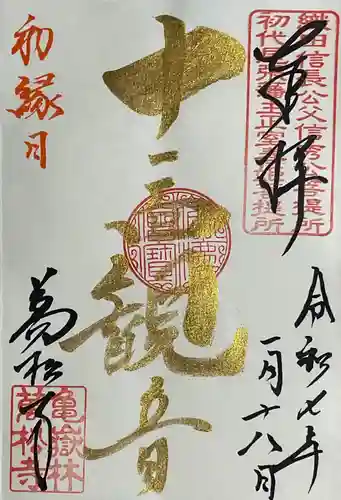 奉拝
織田信長公父信秀公菩提所
令和七年
一月十八日
十一面観音
佛法僧寶
初縁日
萬松寺
亀嶽林
萬松寺